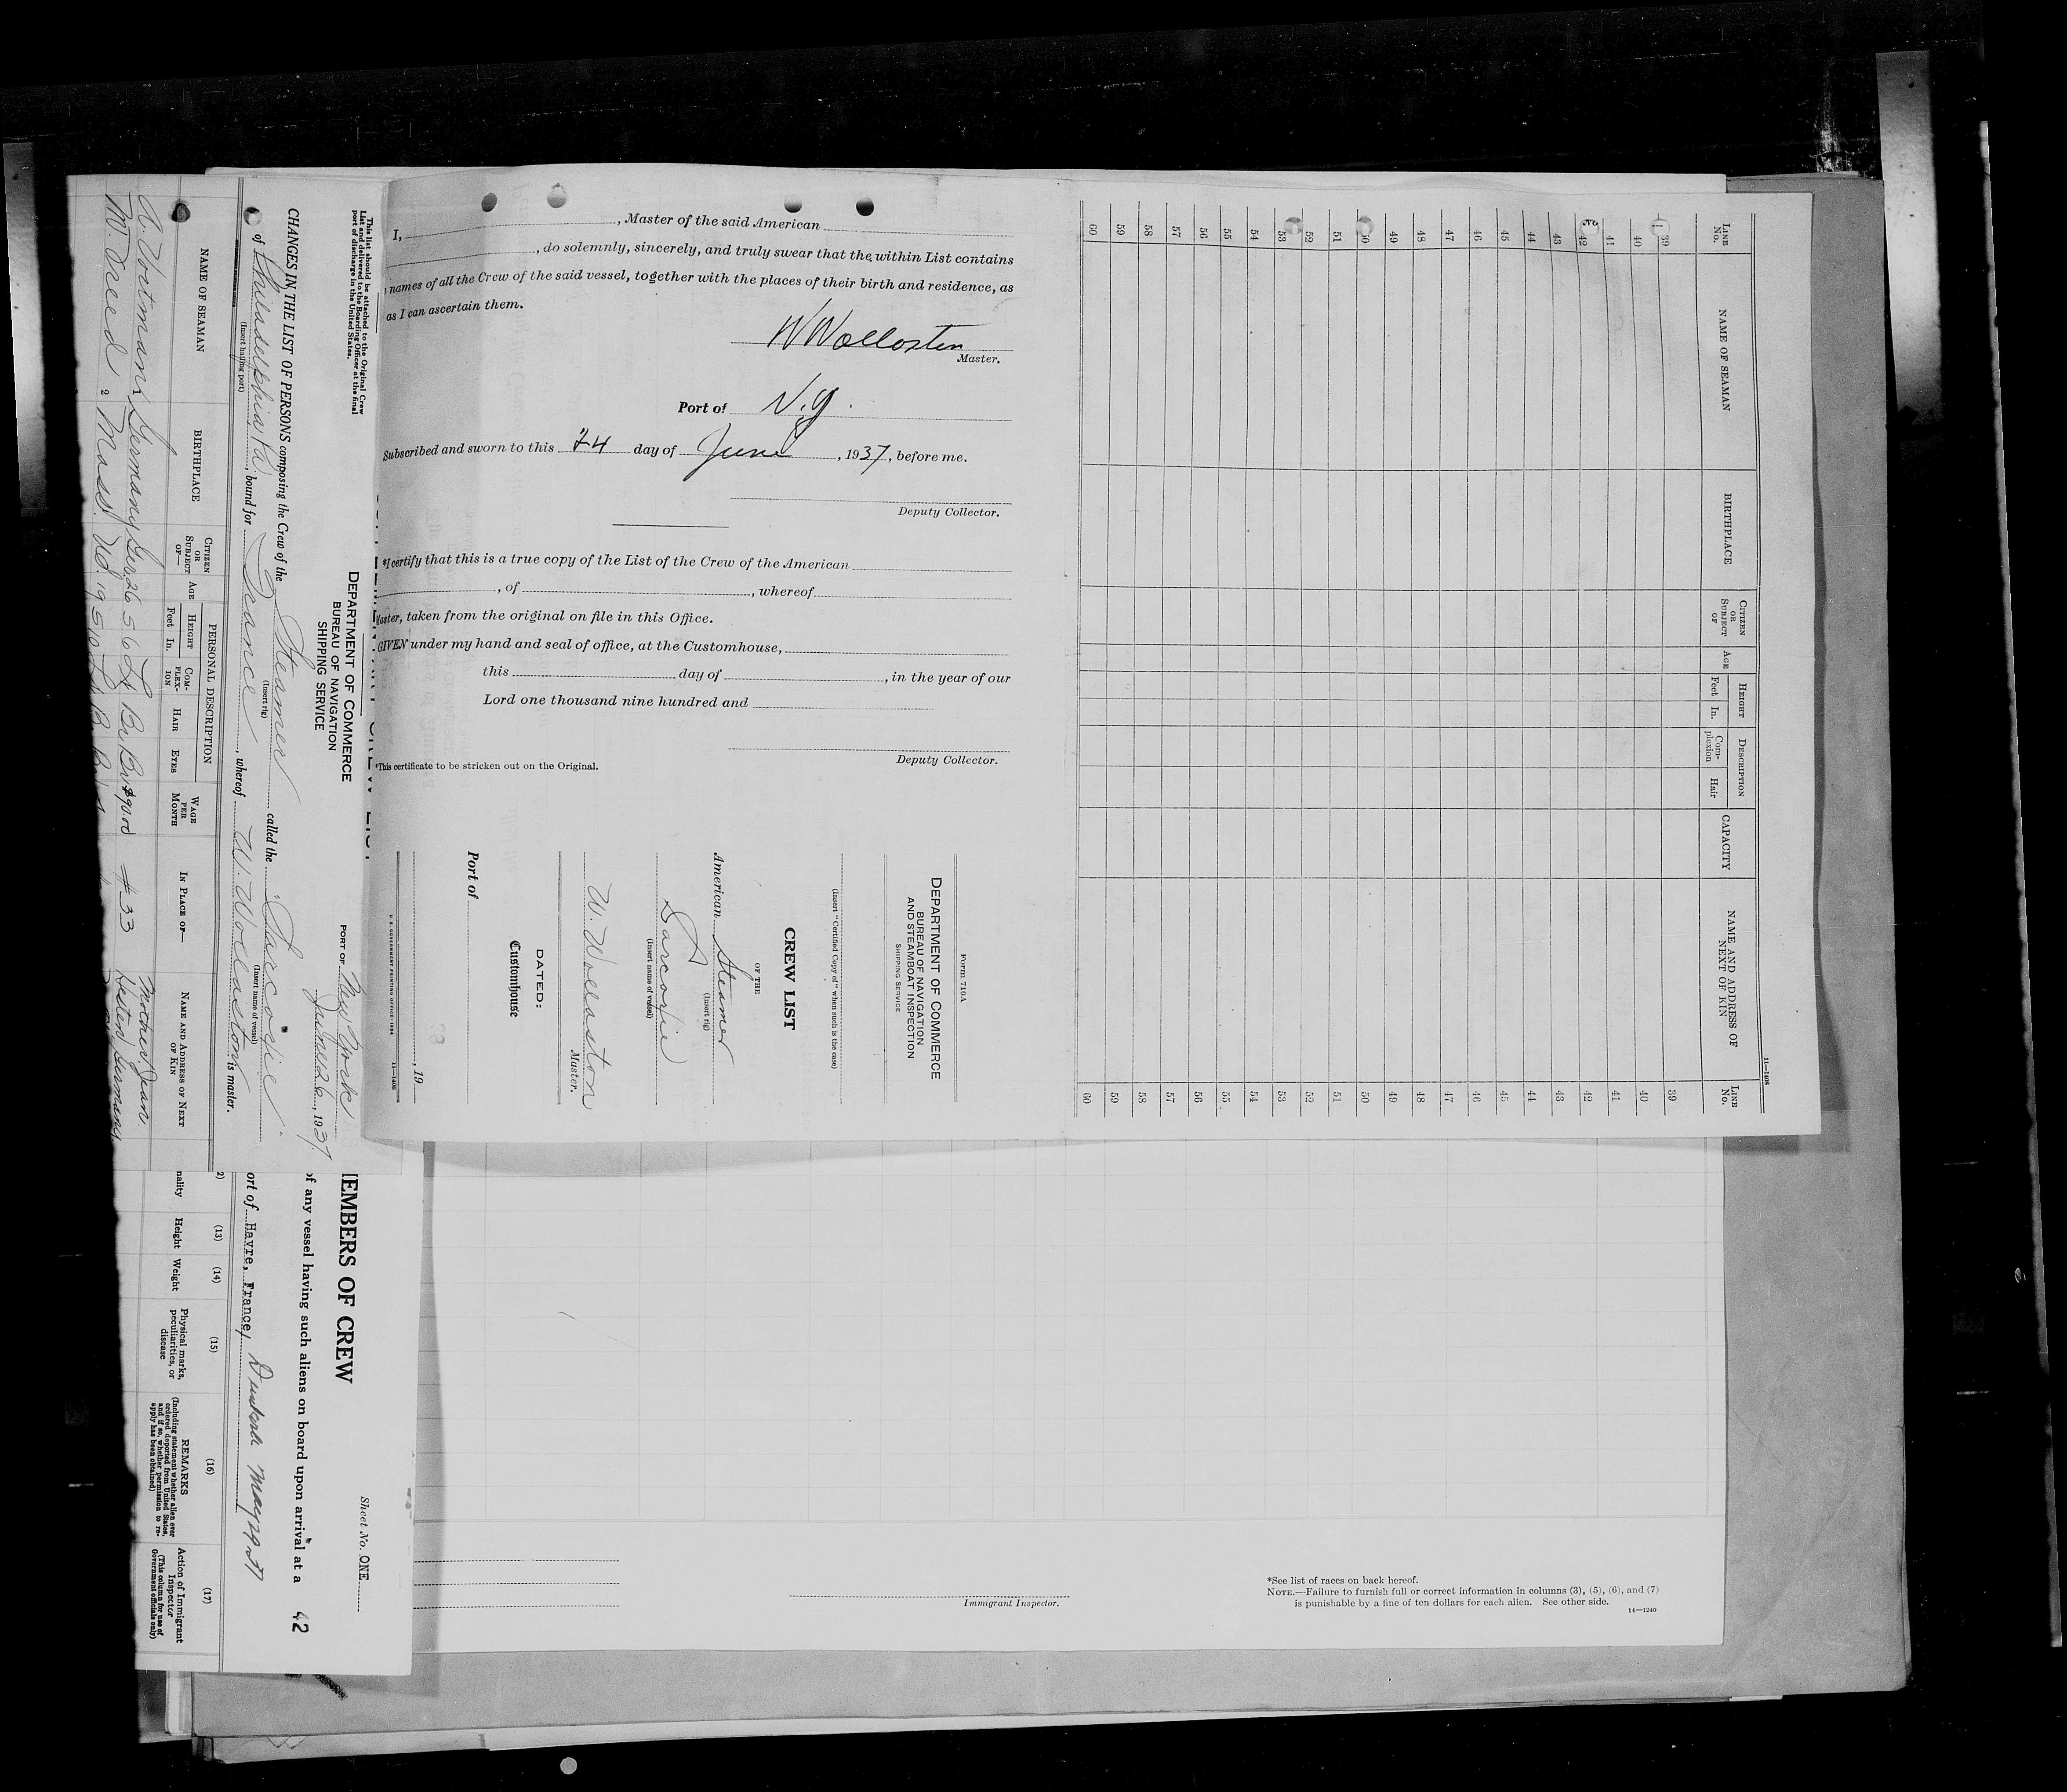 I, , Master of the said American
, do solemnly, sincerely, and truly swear that the within List contains
names of all the Crew of the said vessel, together with the places of their birth and residence, as
as I can ascertain them.
W Wollaston
Master.
Port of N.Y.
Subscribed and sworn to this 24 day of June , 1937, before me.
Deputy Collector.
*I certify that this is a true copy of the List of the Crew of the American
, of , whereof
Master, taken from the original on file in this Office.
GIVEN under my hand and seal of office, at the Customhouse,
this day of , in the year of our
Lord one thousand nine hundred and
Deputy Collector.
*This certificate to be stricken out on the Original.
Form 710A
DEPARTMENT OF COMMERCE
BUREAU OF NAVIGATION
AND STEAMBOAT INSPECTION
SHIPPING SERVICE
(Insert "Certified Copy of" when such is the case)
CREW LIST
OF THE
American Steamer
(Insert rig)
Sarcoxie
(Insert name of vessel)
W. Wollaston
Master.
DATED:
Customhouse
Port of
, 19
U.S. GOVERNMENT PRINTING OFFICE: 1936 11—1406
11—1406
LINE No.
NAME OF SEAMAN
BIRTHPLACE
CITIZEN OR SUBJECT OF
AGE
HEIGHT
Feet In.
DESCRIPTION
Complexion Hair
CAPACITY
NAME AND ADDRESS OF NEXT OF KIN
LINE No.
39 39
40 40
41 41
42 42
43 43
44 44
45 45
46 46
47 47
48 48
49 49
50 50
51 51
52 52
53 53
54 54
55 55
56 56
57 57
58 58
59 59
60 60
This list should be attached to the Original Crew
List and delivered to the Boarding Officer at the final
port of discharge in the United States.
DEPARTMENT OF COMMERCE
BUREAU OF NAVIGATION
SHIPPING SERVICE
PORT OF New York
June 26, 1937
CHANGES IN THE LIST OF PERSONS composing the Crew of the Steamer called the Sarcoxie
(Insert rig) (Insert name of vessel)
of Philadelphia Pa, bound for France, whereof W. Wollaston is master.
(Insert hailing port)
NAME OF SEAMAN
BIRTHPLACE
CITIZEN OR SUBJECT OF—
AGE
PERSONAL DESCRIPTION
HEIGHT
Feet In.
COMPLEXION
HAIR
EYES
WAGE PER MONTH
IN PLACE OF—
NAME AND ADDRESS OF NEXT OF KIN
Germany Ger 26 5 6 Lt Br Br $90.00 #33 Mother
Germany
2 Mass. US. 19 5
EMBERS OF CREW
Sheet No. ONE
of any vessel having such aliens on board upon arrival at a
42
ort of Havre, France,
2) (13) (14) (15) (16) (17)
nality
Height
Weight
Physical marks, peculiarities, or disease
REMARKS
(Including statement whether alien ever ordered deported from United States, and if so, whether permission to reapply has been obtained)
Action of Immigrant Inspector
(This column for use of Government officials only)
Immigrant Inspector.
*See list of races on back hereof.
NOTE.—Failure to furnish full or correct information in columns (3), (5), (6), and (7)
is punishable by a fine of ten dollars for each alien. See other side.
14—1240